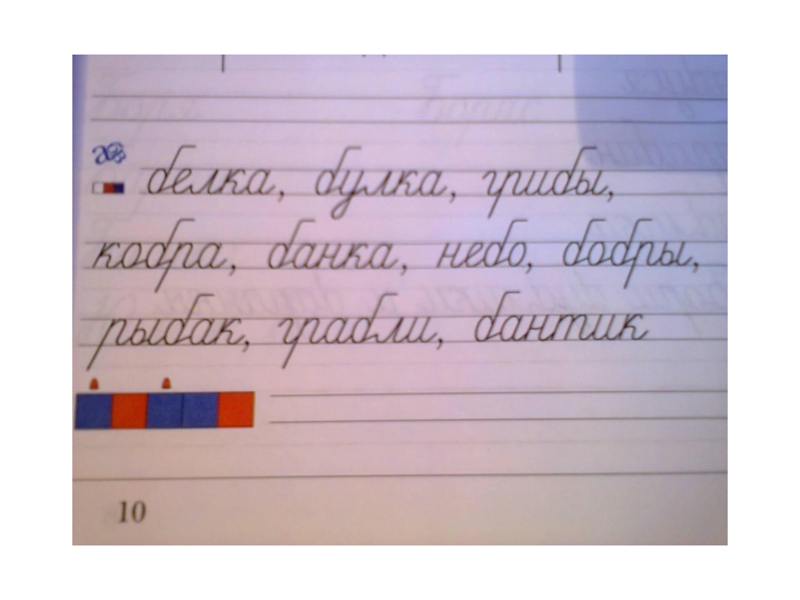 белка, булка, грибы,
кобра, банка, небо, бобры,
рыбак, грабли, бантик
10